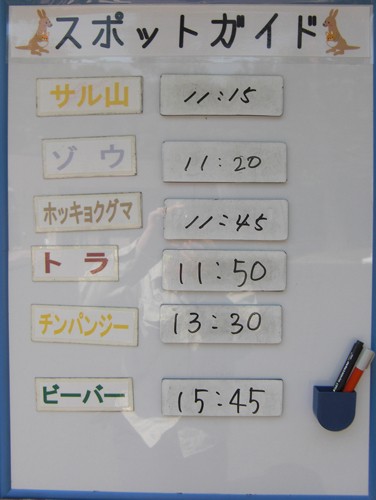 スポットガイド
サル山 11:15
ゾウ 11:20
ホッキョクグマ 11:45
トラ 11:50
チンパンジー 13:30
ビーバー 15:45